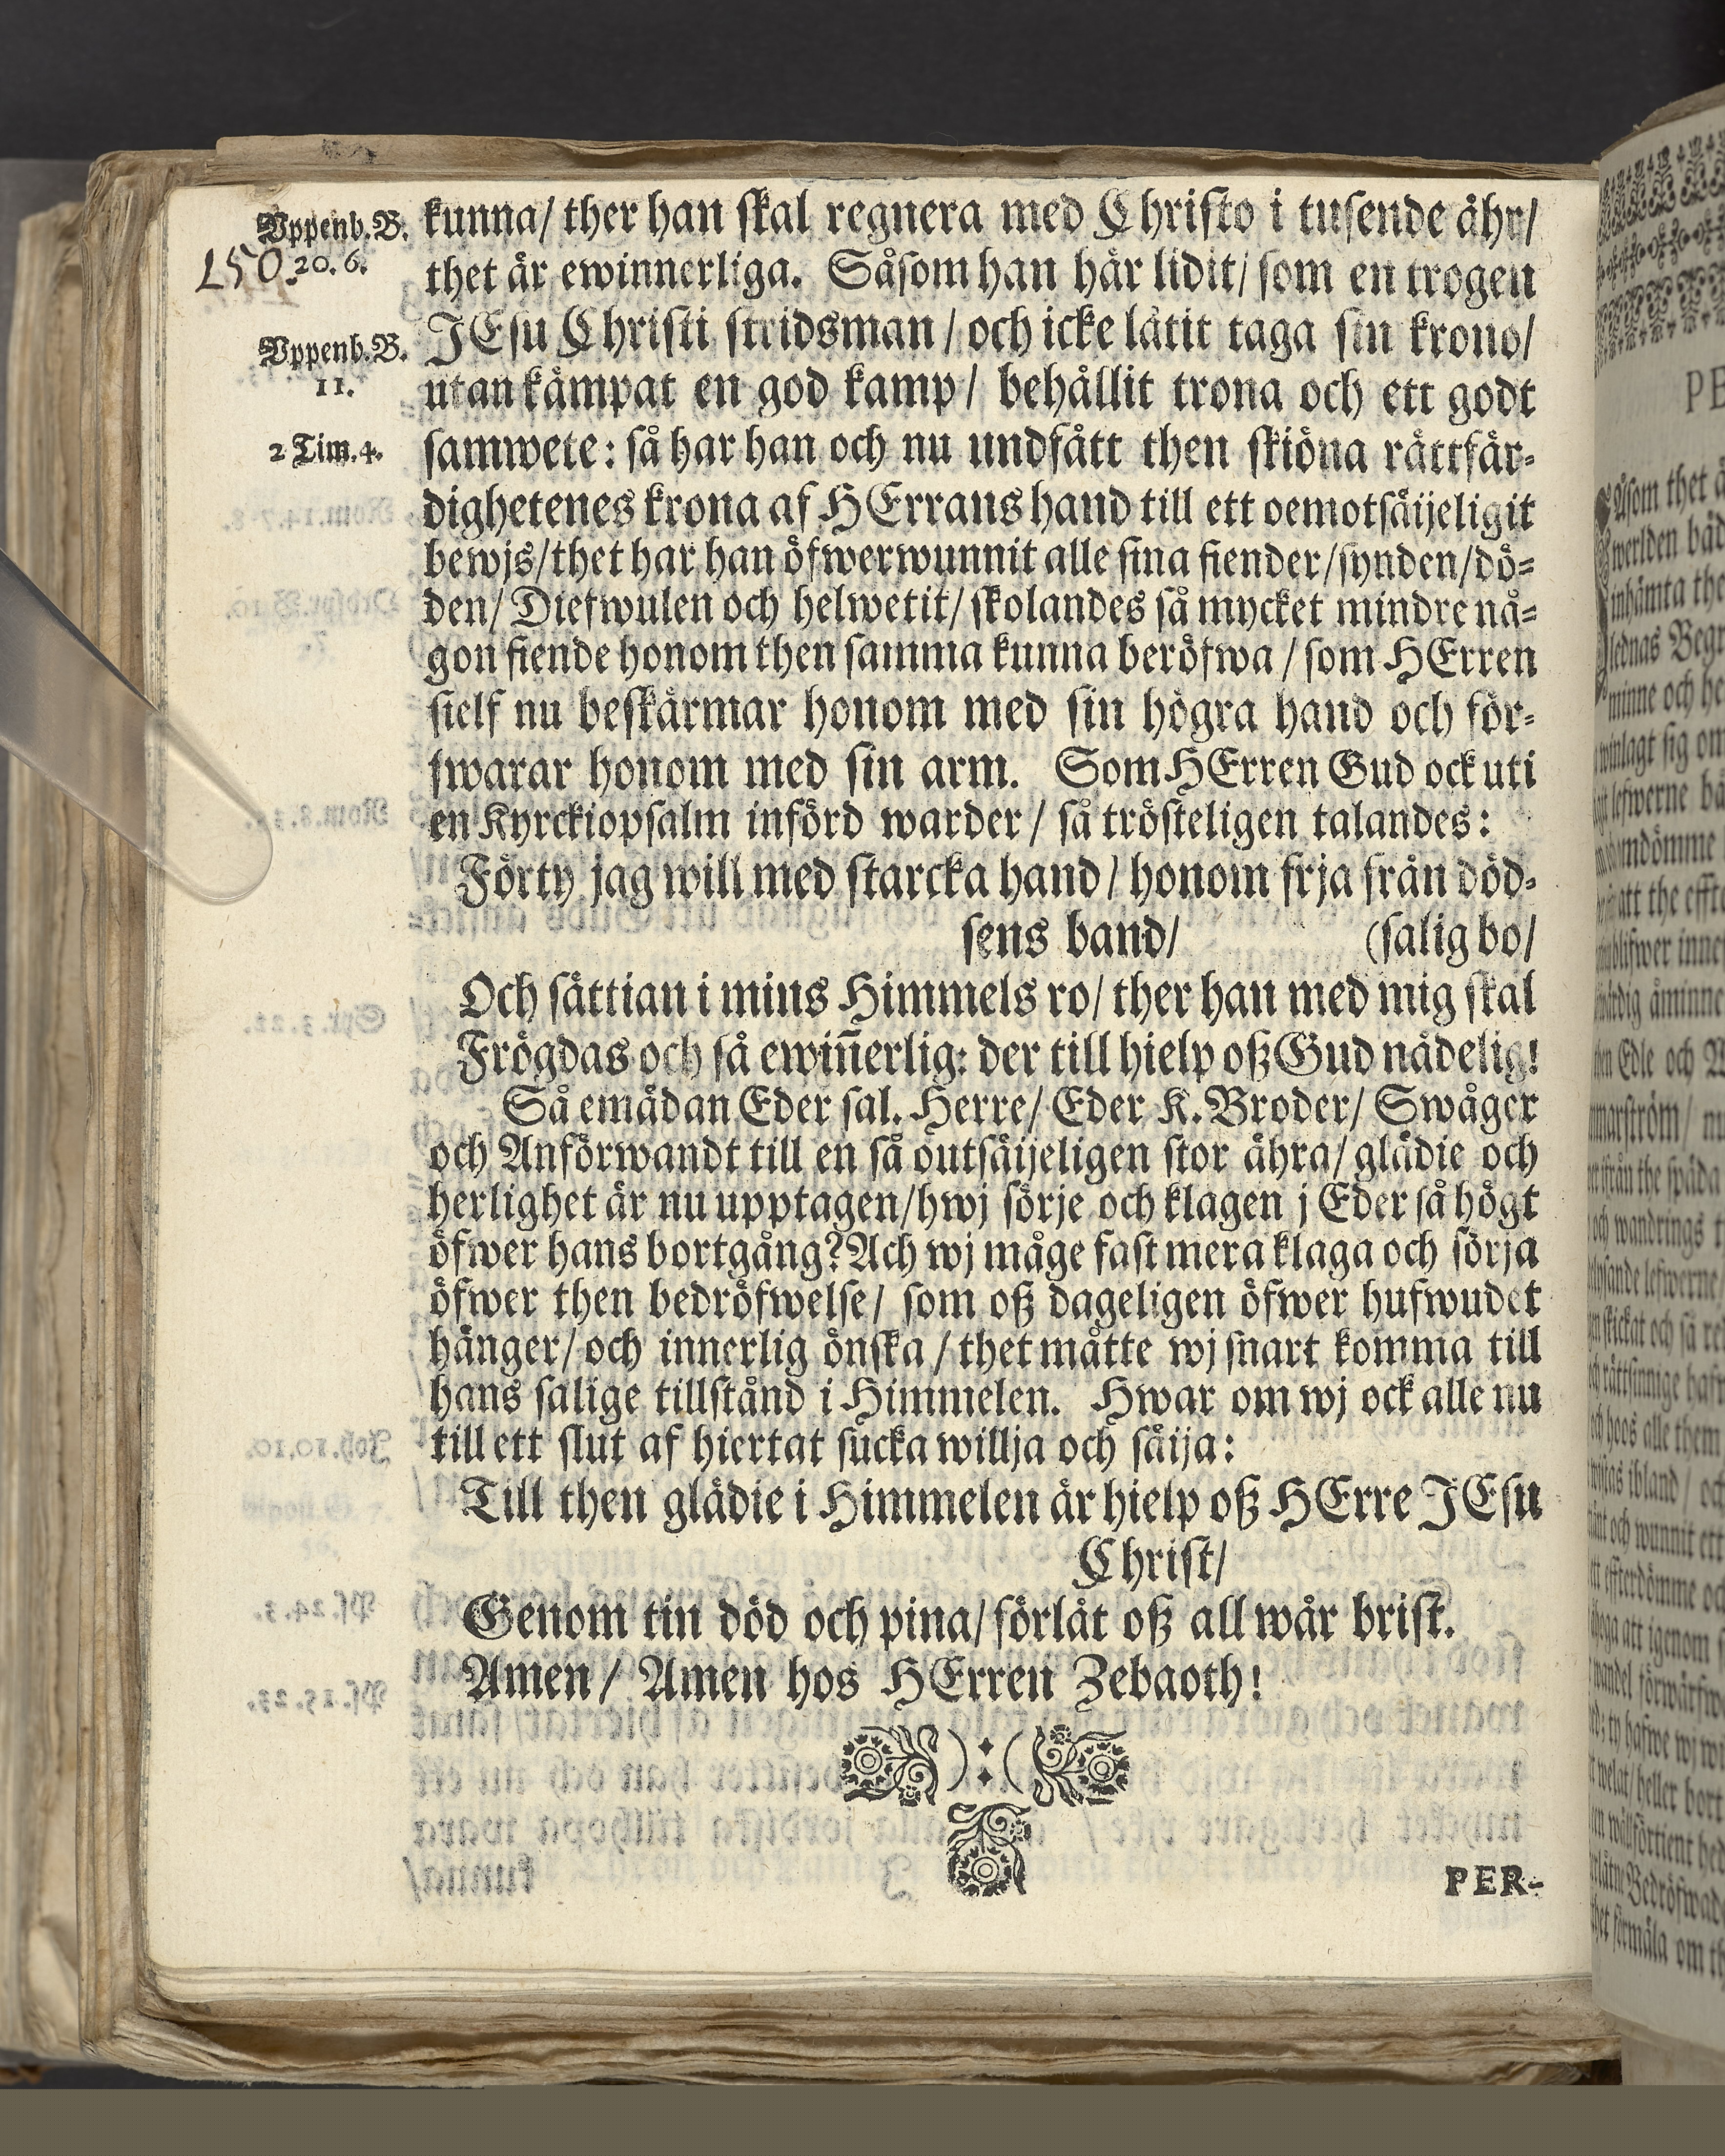 Uppenb.B.
20. 6.
150.
Uppenb.B.
11.
2 Tim. 4.
kunna/ ther han skal regnera med Christo i tusende åhr/
thet är ewinnerliga. Såsom han här lidit/ som en trogen
JEsu Christi stridsman/ och icke låtit taga sin krono/
utan kämpat en god kamp/ behållit trona och ett godt
samwete: så har han och nu undfått then skiöna rättfär-
dighetenes krona af HErrans hand till ett oemotsäijeligit
bewjs/ thet har han öfwerwunnit alle sina fiender/ synden/ dö-
den/ Diefwulen och helwetit/ skolandes så mycket mindre nå-
gon fiende honom then samma kunna beröfwa/ som HErren
sielf nu beskärmar honom med sin högra hand och för-
swarar honom med sin arm. Som HErren Gud ock uti
en Kyrckiopsalm införd warder/ så trösteligen talandes:
Förty jag will med starcka hand/ honom frja från död-
sens band/ (salig bo/
Och sättian i mins Himmels ro/ ther han med mig skal
Frögdas och så ewiñerlig: der till hielp oß Gud nådelig!
Så emädan Eder sal. Herre/ Eder K. Broder/ Swåger
och Anförwandt till en så outsäijeligen stor ähra/ glädie och
herlighet är nu upptagen/ hwj sörje och klagen j Eder så högt
öfwer hans bortgång? Ach wj måge fast mera klaga och sörja
öfwer then bedröfwelse/ som oß dageligen öfwer hufwudet
hänger/ och innerlig önska/ thet måtte wj snart komma till
hans salige tillstånd i Himmelen. Hwar om wj ock alle nu
till ett slut af hiertat sucka willja och säija:
Till then glädie i Himmelen är hielp oß HErre JEsu
Christ/
Genom tin död och pina/ förlåt oß all wår brist.
Amen/ Amen hos HErren Zebaoth!
PER-